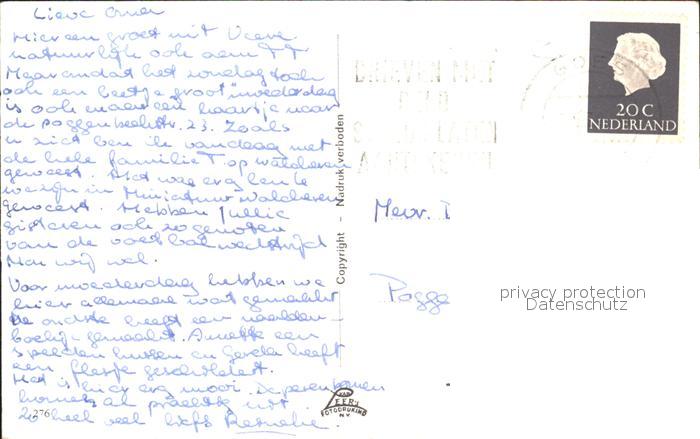 Lieve Oma
Hier een groet uit Veere
natuurlijk ook aan TT
Maar omdat het zondag toch
ook een beetje groot moederdag
is ook maar een kaartje naar
de poggenbeekstr. 23. Zoals
u ziet ben ik vandaag met
de hele familie T. op walcheren
geweest. Het was erg leuk
we zijn in Miniatuur walcheren
geweest. Hebben jullie
gisteren ook zo genoten
van de voetbalwedstrijd
Nou wij wel.
Voor moederdag hebben we
hier allemaal wat gemaakt
de oudste heeft een naalden-
boekje gemaakt. Annette een
spelden kussen en Gerda heeft
een flesje geschilderd.
Het is hier erg mooi. De perenbomen
komen al prachtig uit
zo heel veel liefs
276
Copyright - Nadruk verboden
VAN
LEER'S
FOTODRUKIND
N.V.
20 C
NEDERLAND
Mevr. T
Pogge
privacy protection
Datenschutz